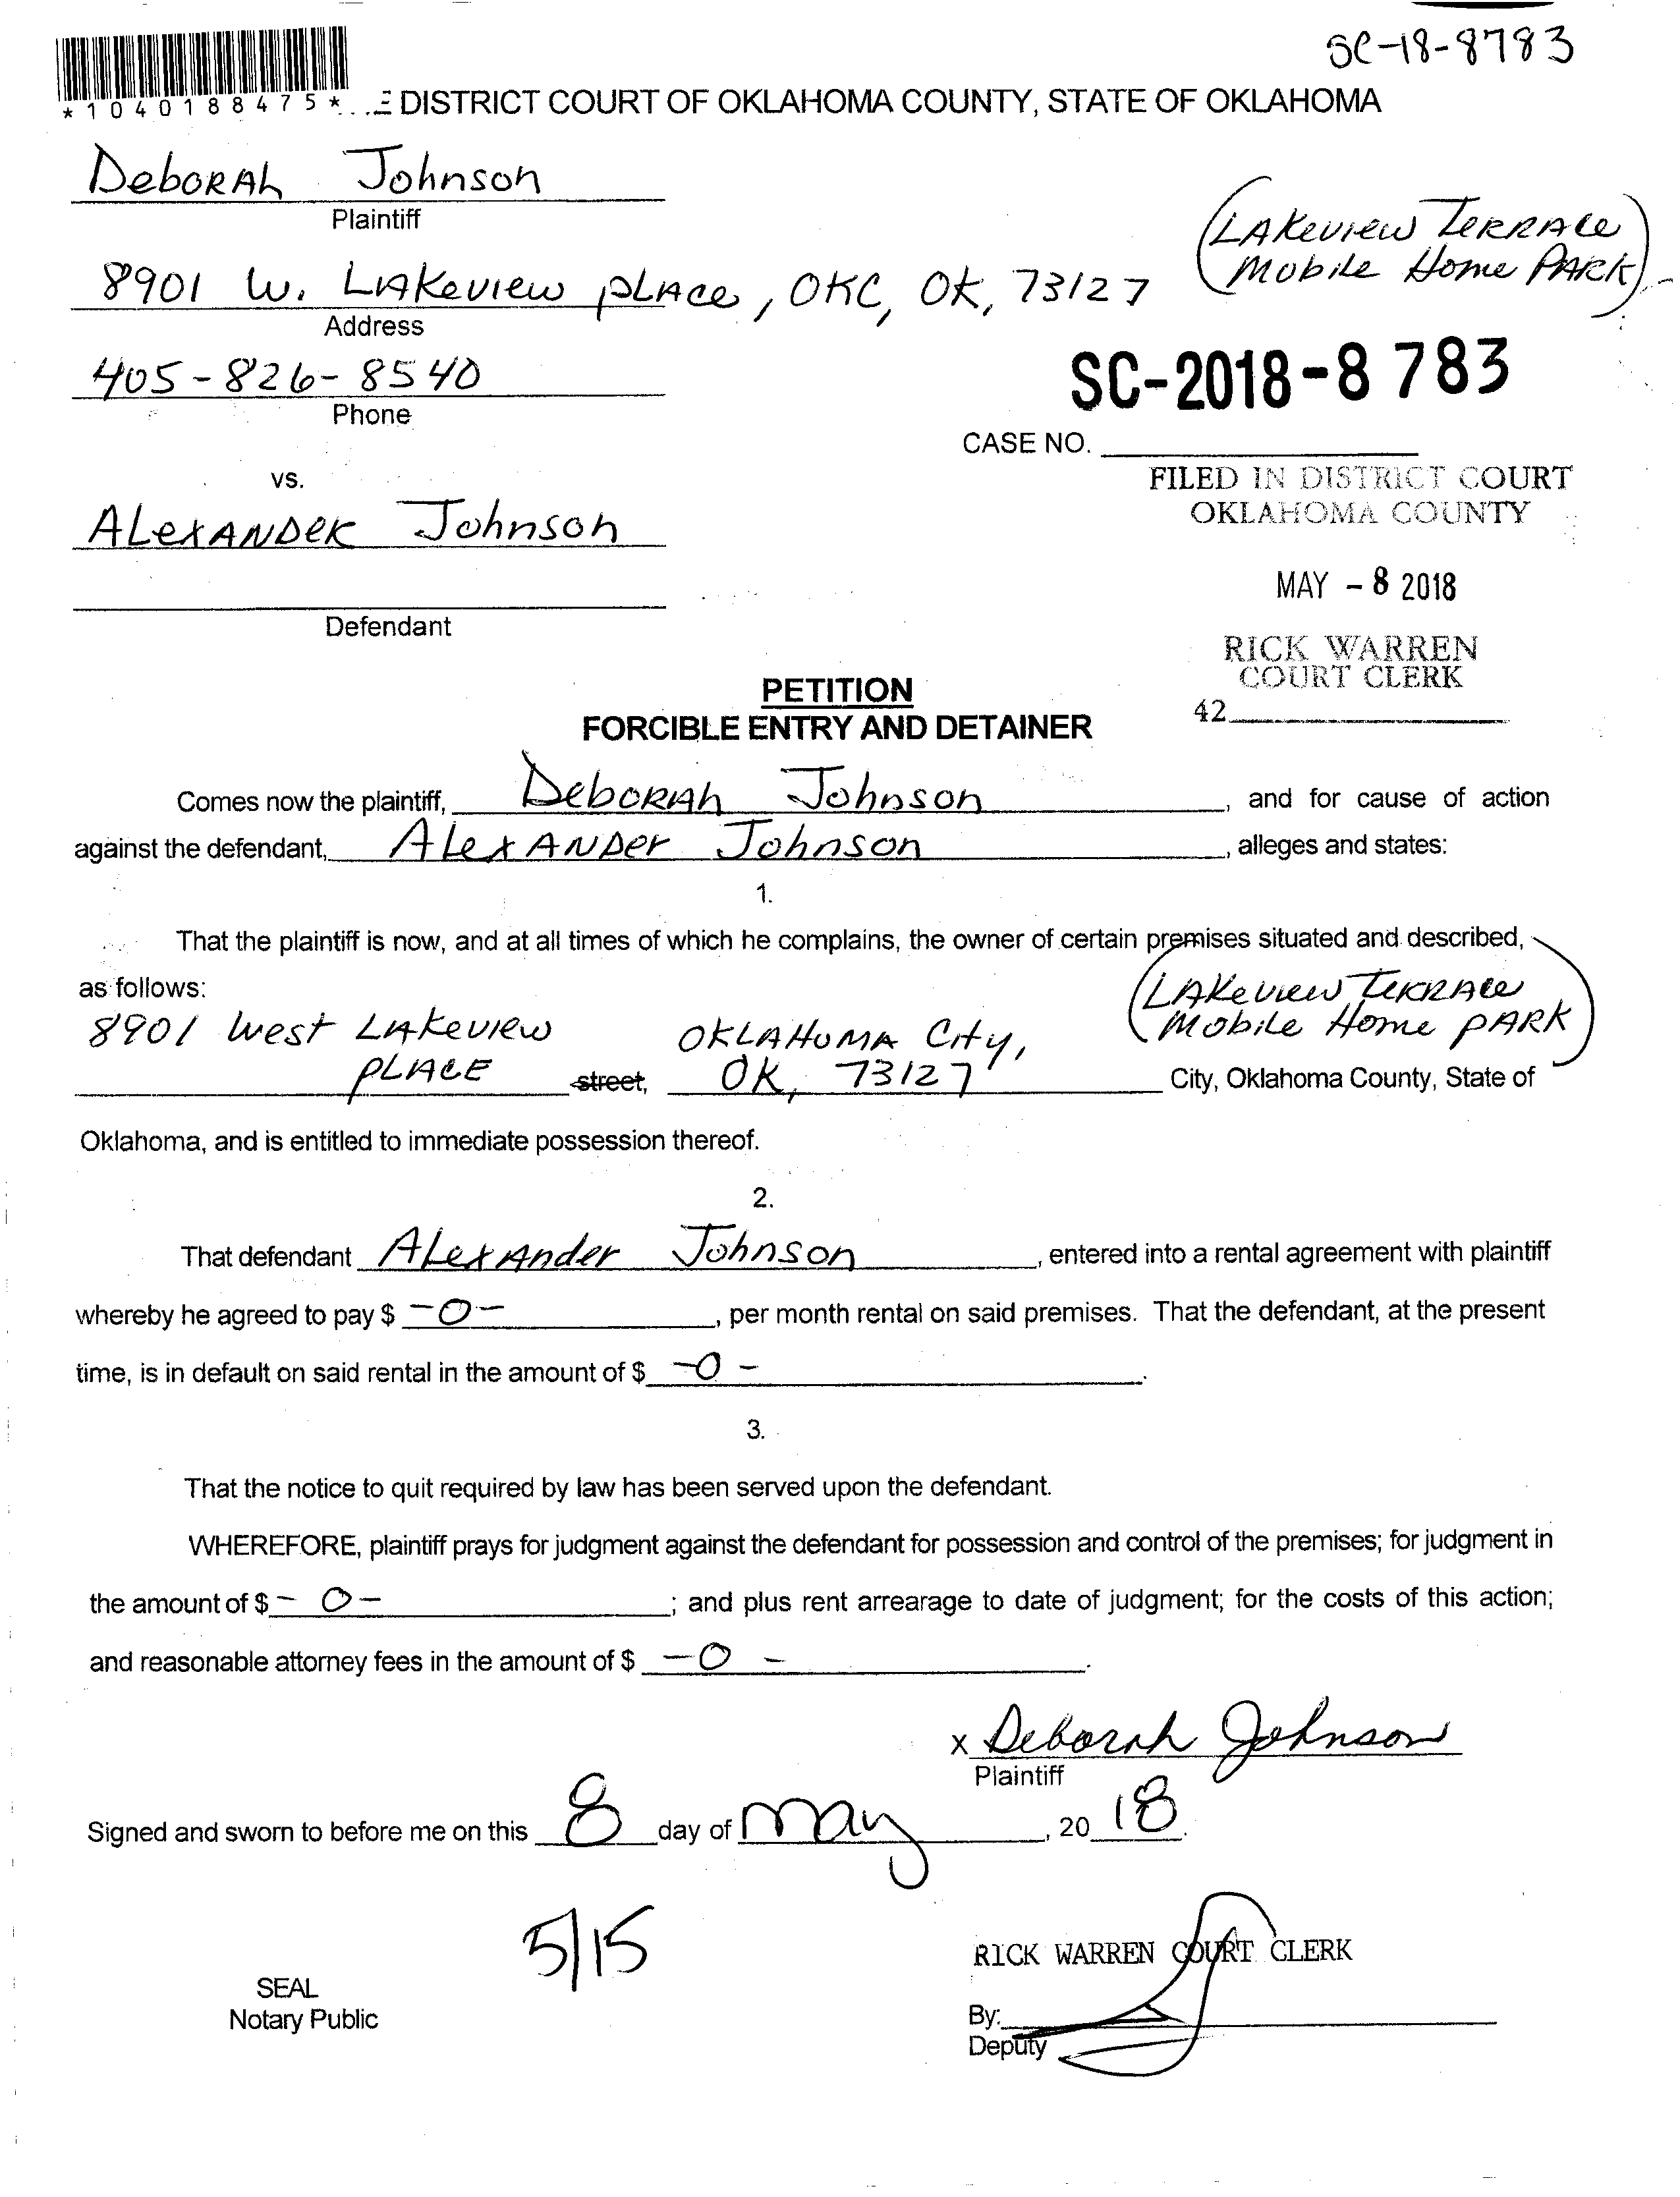 SC-18-8783
*1040188475*
DISTRICT COURT OF OKLAHOMA COUNTY, STATE OF OKLAHOMA
Deborah Johnson
Plaintiff
(Lakeview Terrace
Mobile Home Park)
8901 W. Lakeview place, OKC, OK, 73127
Address
405-826-8540
Phone
SC-2018-8783
CASE NO.
vs.
FILED IN DISTRICT COURT
OKLAHOMA COUNTY
Alexander Johnson
MAY - 8 2018
Defendant
RICK WARREN
COURT CLERK
42
PETITION
FORCIBLE ENTRY AND DETAINER
Comes now the plaintiff, Deborah Johnson, and for cause of action
against the defendant, Alexander Johnson, alleges and states:
1.
That the plaintiff is now, and at all times of which he complains, the owner of certain premises situated and described,
as follows:
(Lakeview Terrace
Mobile Home Park)
8901 West Lakeview Oklahoma City,
Place street, OK, 73127 City, Oklahoma County, State of
Oklahoma, and is entitled to immediate possession thereof.
2.
That defendant Alexander Johnson, entered into a rental agreement with plaintiff
whereby he agreed to pay $ -0-, per month rental on said premises. That the defendant, at the present
time, is in default on said rental in the amount of $ -0-.
3.
That the notice to quit required by law has been served upon the defendant.
WHEREFORE, plaintiff prays for judgment against the defendant for possession and control of the premises; for judgment in
the amount of $ -0-; and plus rent arrearage to date of judgment; for the costs of this action;
and reasonable attorney fees in the amount of $ -0-.
x Deborah Johnson
Plaintiff
Signed and sworn to before me on this 8 day of May, 2018.
5/15
RICK WARREN COURT CLERK
SEAL
Notary Public
By:
Deputy